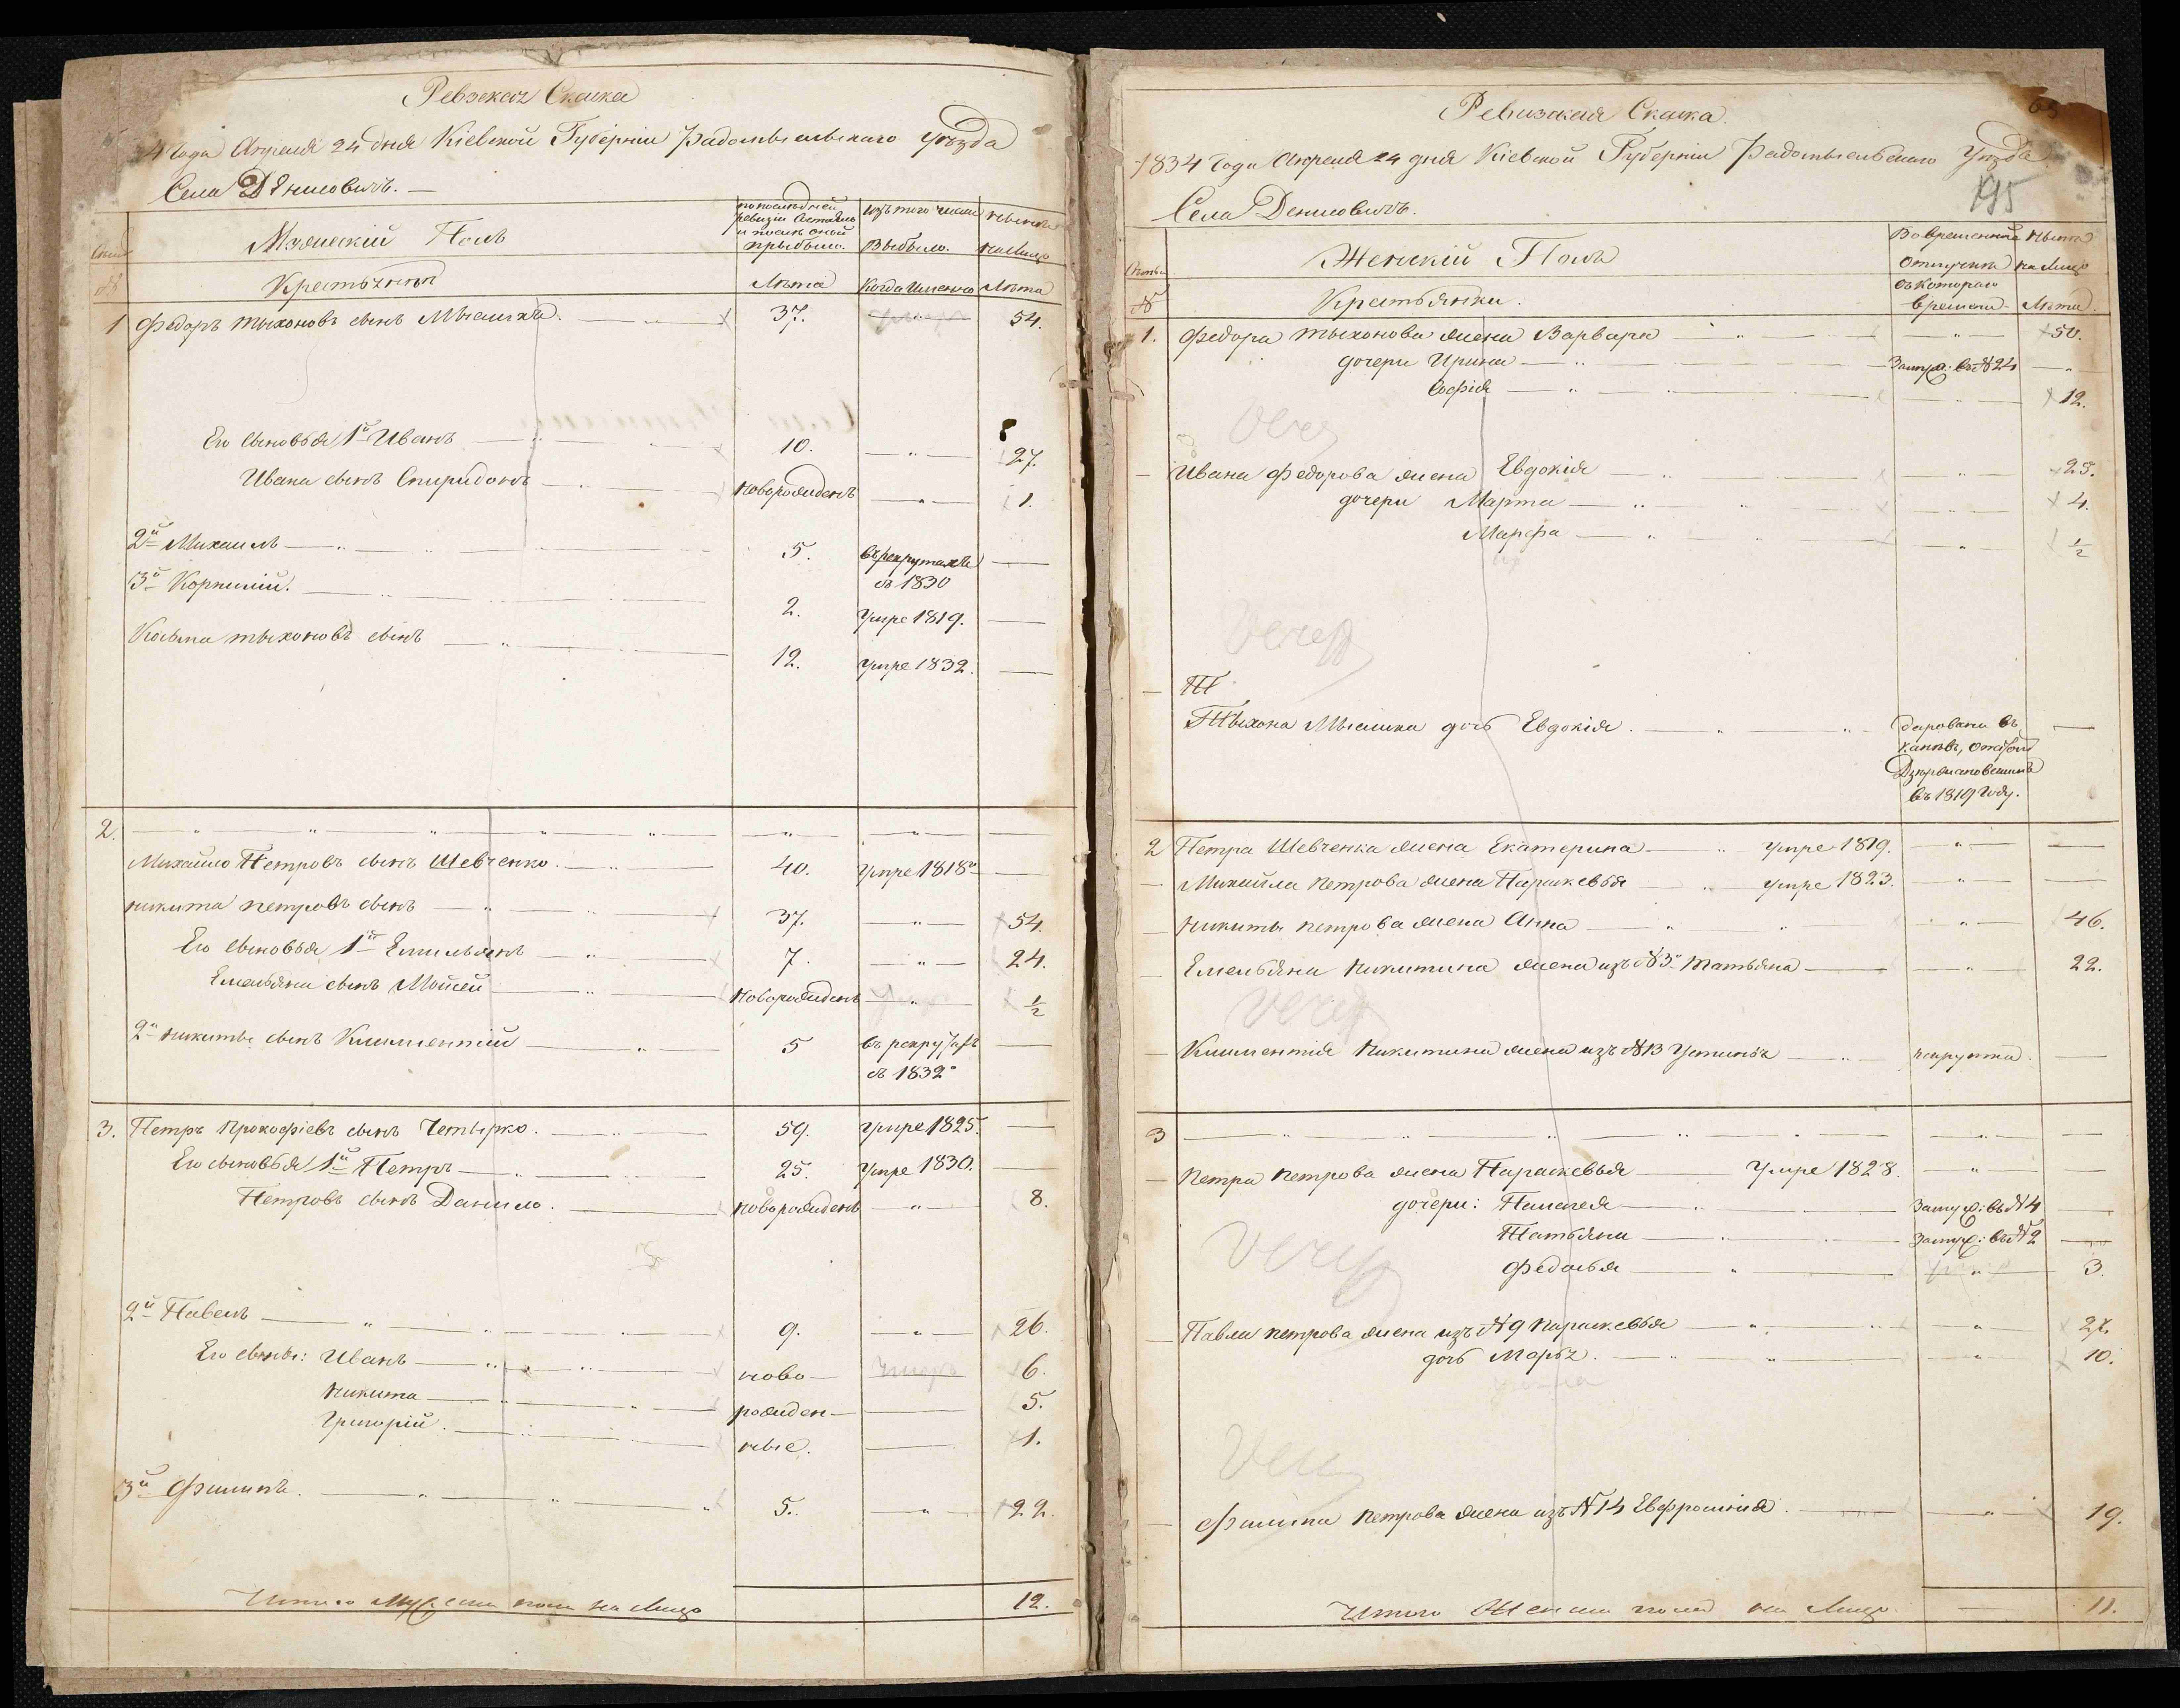 Ревзская Скаска
4 Года Апреля 24 дня Кіевской Губерніи Радомысльскаго уѣзда
Села Дениловичъ.
Мужескій Полъ
по последней ревизіи состояло и после оной прыбыло.
изъ того числа Выбыло.
ныне на Лицо
№
Крестьяны
Лѣта
Когда Именно
Лѣта
1 Федоръ Тыхоновъ сынъ Мысника. 37. 54.
Его сыновья 1й Иванъ 10. 27.
Ивана сынъ Спиридонъ новорожденъ 1.
2й Михаилъ 5. въ рекрутахъ съ 1830
3й Корнилій. 2. умре 1819.
Косьма тыхоновъ сынъ 12. умре 1832.
2.
Михайло Петровъ сынъ Шевченко. 40. умре 1818
никита петровъ сынъ 37. 54.
Его сыновья 1й Емильянъ 7. 24.
Емельяна сынъ Мойсей новорожденъ ½
2й никиты сынъ Климентий 5 въ рекрутахъ съ 1832
3. Петръ Прокофіевъ сынъ Четырко. 59. умре 1825.
Его сыновья 1й Петръ 25. умре 1830.
Петровъ сынъ Данило. новорожденъ 8.
2й Павелъ 9. 26.
Его сыны: Иванъ ново- 6.
Никита рожден- 5.
Григорій. ные. 1.
3й Филипъ. 5. 22.
Итого Мужеска пола на Лицо 12.
63
195
Ревизская Скаска.
1834 Года Апреля 24 дня Кіевской Губерніи Радомысльскаго Уезда
Села Дениловичъ.
Женскій Полъ
Во временной отлучкѣ съ котораго времени
Ныне на Лицо
№
Крестьянки.
Лѣта.
1. Федора Тыхонова жена Варвара 50.
дочери Ирина Замуж: въ №24
Софія 12.
Ивана Федорова жена Евдокія 25.
дочери Марта 4.
Марфа ½
Тыхона Мысника дочь Евдокія.
въ 1819 году.
2 Петра Шевченка жена Екатерина умре 1819.
Михайла Петрова жена Параскевья умре 1823.
Никиты петрова жена Анна 46.
Емельяна Никитина жена изъ №3 Татьяна 22.
Климентія Никитина жена изъ №13 Устинья рекрутка.
3
Петра Петрова жена Параскевья Умре 1828.
дочери: Палагея Замуж: въ №4
Татьяна Замуж: въ №2
Федосья 3.
Павла петрова жена изъ №9 Параскевья 27.
дочь Марья. 10.
Филипа Петрова жена изъ №14 Евфросинія. 19.
Итого Женска пола на Лицо 11.